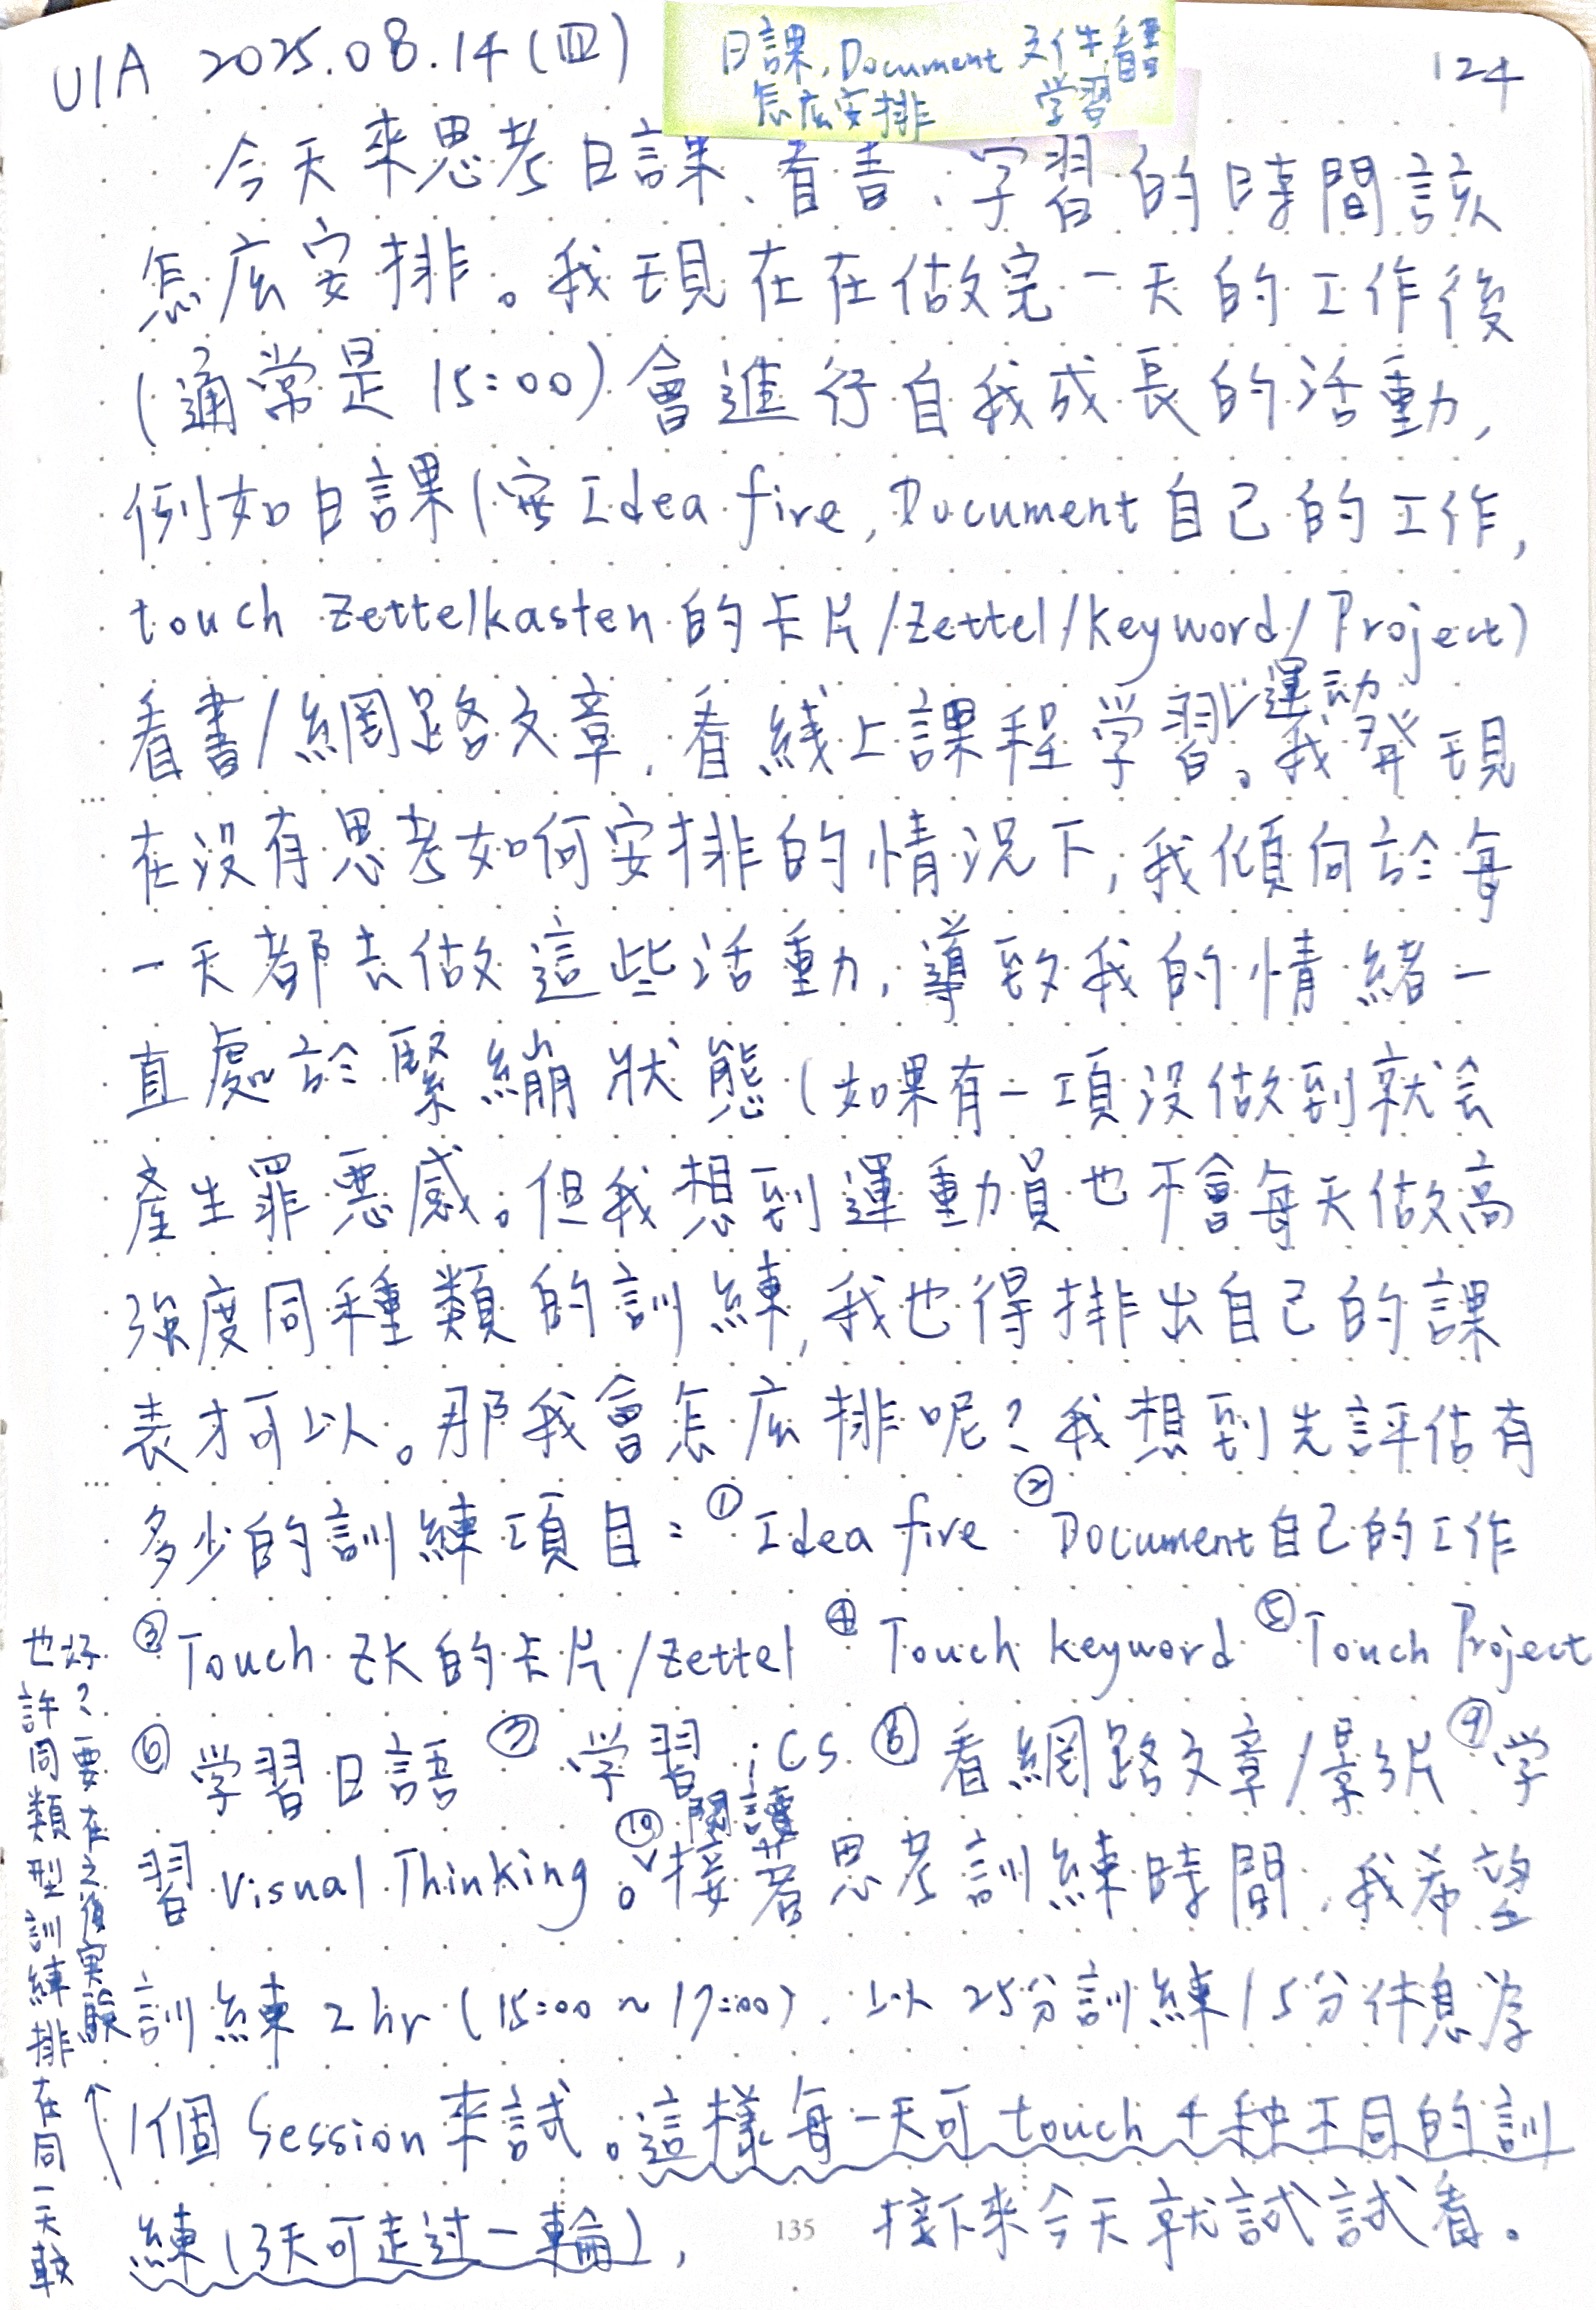 U1A 2025.08.14(四)
日課, Document 文件, 看書
怎麼安排 学習
124
今天來思考日課、看書、学習的時間該
怎麼安排。我現在在做完一天的工作後
(通常是15:00)會進行自我成長的活動,
例如日課(寫Idea fire, Document自己的工作,
touch Zettelkasten的卡片/Zettel/Keyword/Project)
看書/網路文章,看綫上課程学習、運动。我發現
在没有思考如何安排的情況下,我傾向於每
一天都去做這些活動,導致我的情緒一
直處於緊繃狀態(如果有一項没做到就会
產生罪惡感。但我想到運動員也不會每天做高
強度同種類的訓練,我也得排出自己的課
表才可以。那我會怎麼排呢?我想到先評估有
多少的訓練項目:①Idea fire ②Document自己的工作
③Touch ZK的卡片/Zettel ④Touch keyword ⑤Touch Project
⑥学習日語 ⑦学習iCS ⑧看網路文章/影片 ⑨学
習Visual Thinking ⑩閱讀。接著思考訓練時間,我希望
訓練2hr(15:00~17:00),以25分訓練/5分休息為
1個Session來試。這樣每一天可touch 4种不同的訓
練(3天可走过一輪), 接下來今天就試試看。
也許同類型訓練排在同一天較
好?要在之後実驗
135